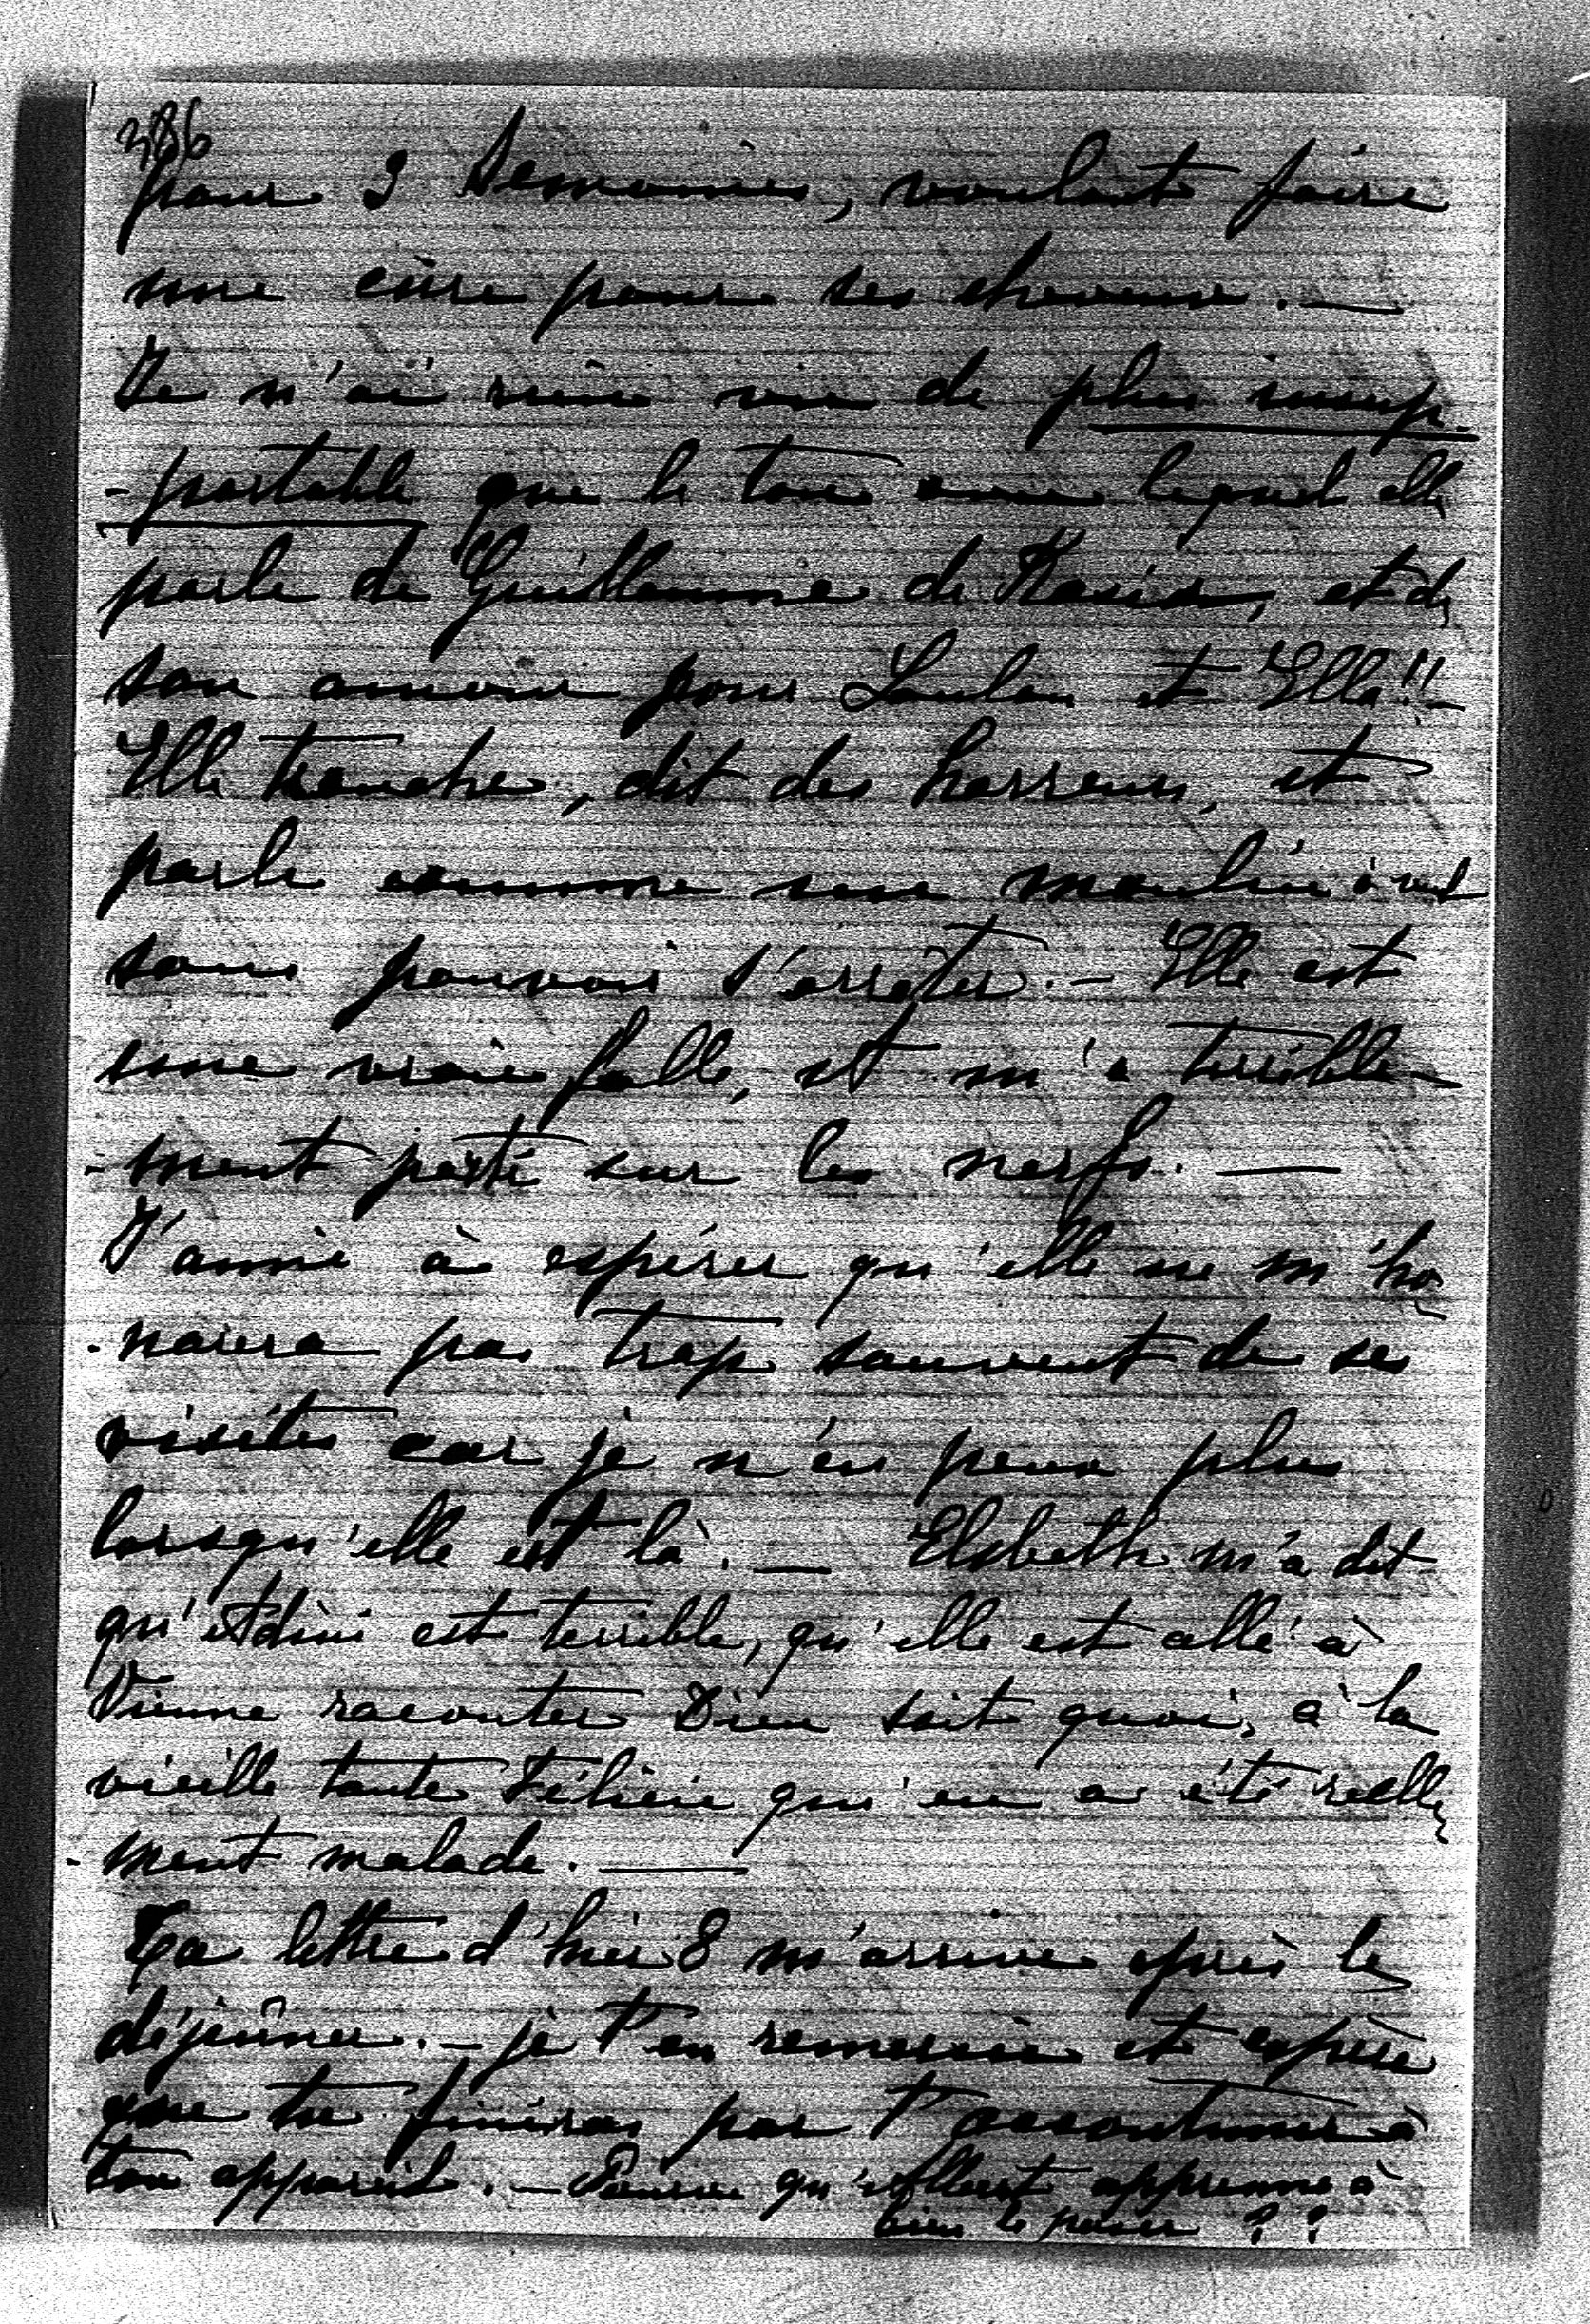 386
pour 3 Semaines, voulant faire
une cûre pour ses cheveux. —
Je n'ai rien vu de plus insup-
-portable que le ton avec lequel elle
parle de Guillaume de et de
son amour pour Loulou et Ella!! -
Elle tranche, dit des horreurs, et
parle comme un moulin à vent
sans pouvoir s'arrêter. - Elle est
une vraie folle, et m'a terrible-
-ment porté sur les nerfs. —
J'aime à espérer qu'elle ne m'ho-
-norera pas trop souvent de ses
visites car je n'en peux plus
lorsqu'elle est là. — Elsbeth m'a dit
qu'Adini est terrible, qu'elle est allé à
Vienne raconter Dieu sait quoi, à la
vieille tante Félicie qui en a été réelle-
-ment malade. —
Ta lettre d'hier 8 m'arrive après le
déjeûner. - je t'en remercie et espère
que tu finiras par t'accoutumer à
ton appareil. - Pourvu qu'Albert apprenne à
bien le poser ? ?